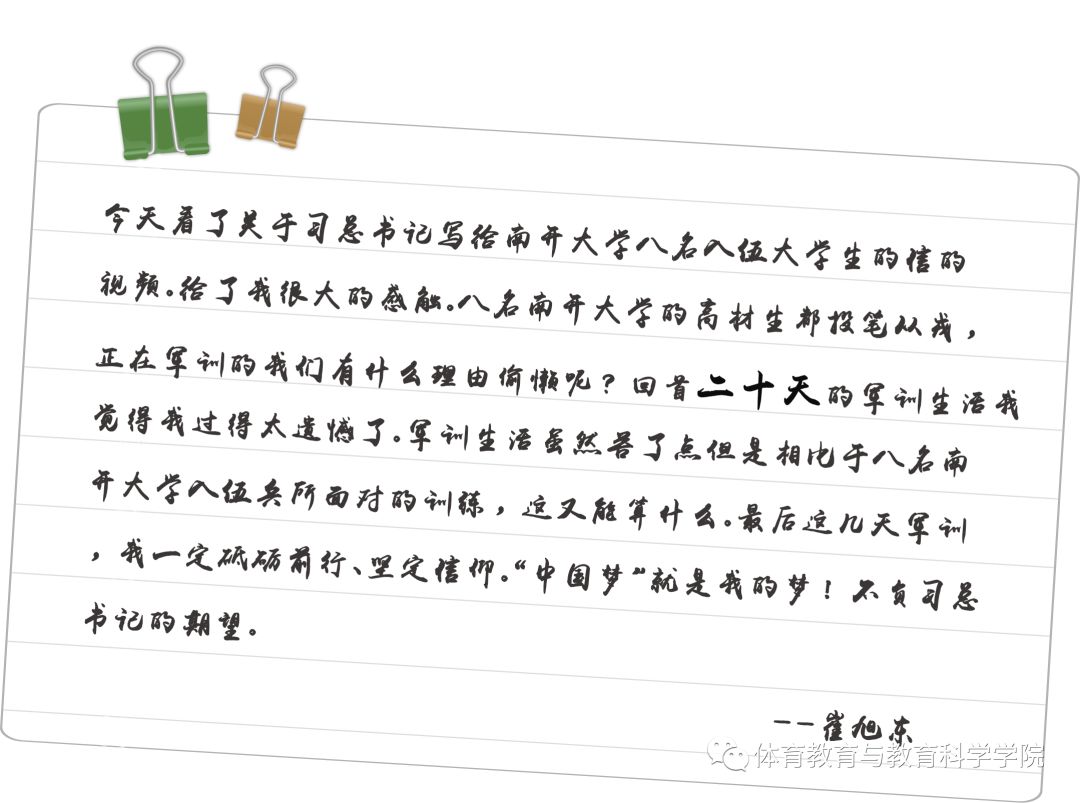 今天看了关于习总书记写给南开大学八名入伍大学生的信的
视频。给了我很大的感触。八名南开大学的高材生都投笔从戎，
正在军训的我们有什么理由偷懒呢？回首二十天的军训生活我
觉得我过得太遗憾了。军训生活虽然苦了点但是相比于八名南
开大学入伍兵所面对的训练，这又能算什么。最后这几天军训
，我一定砥砺前行、坚定信仰。“中国梦”就是我的梦！不负习总
书记的期望。
--崔旭东
体育教育与教育科学学院